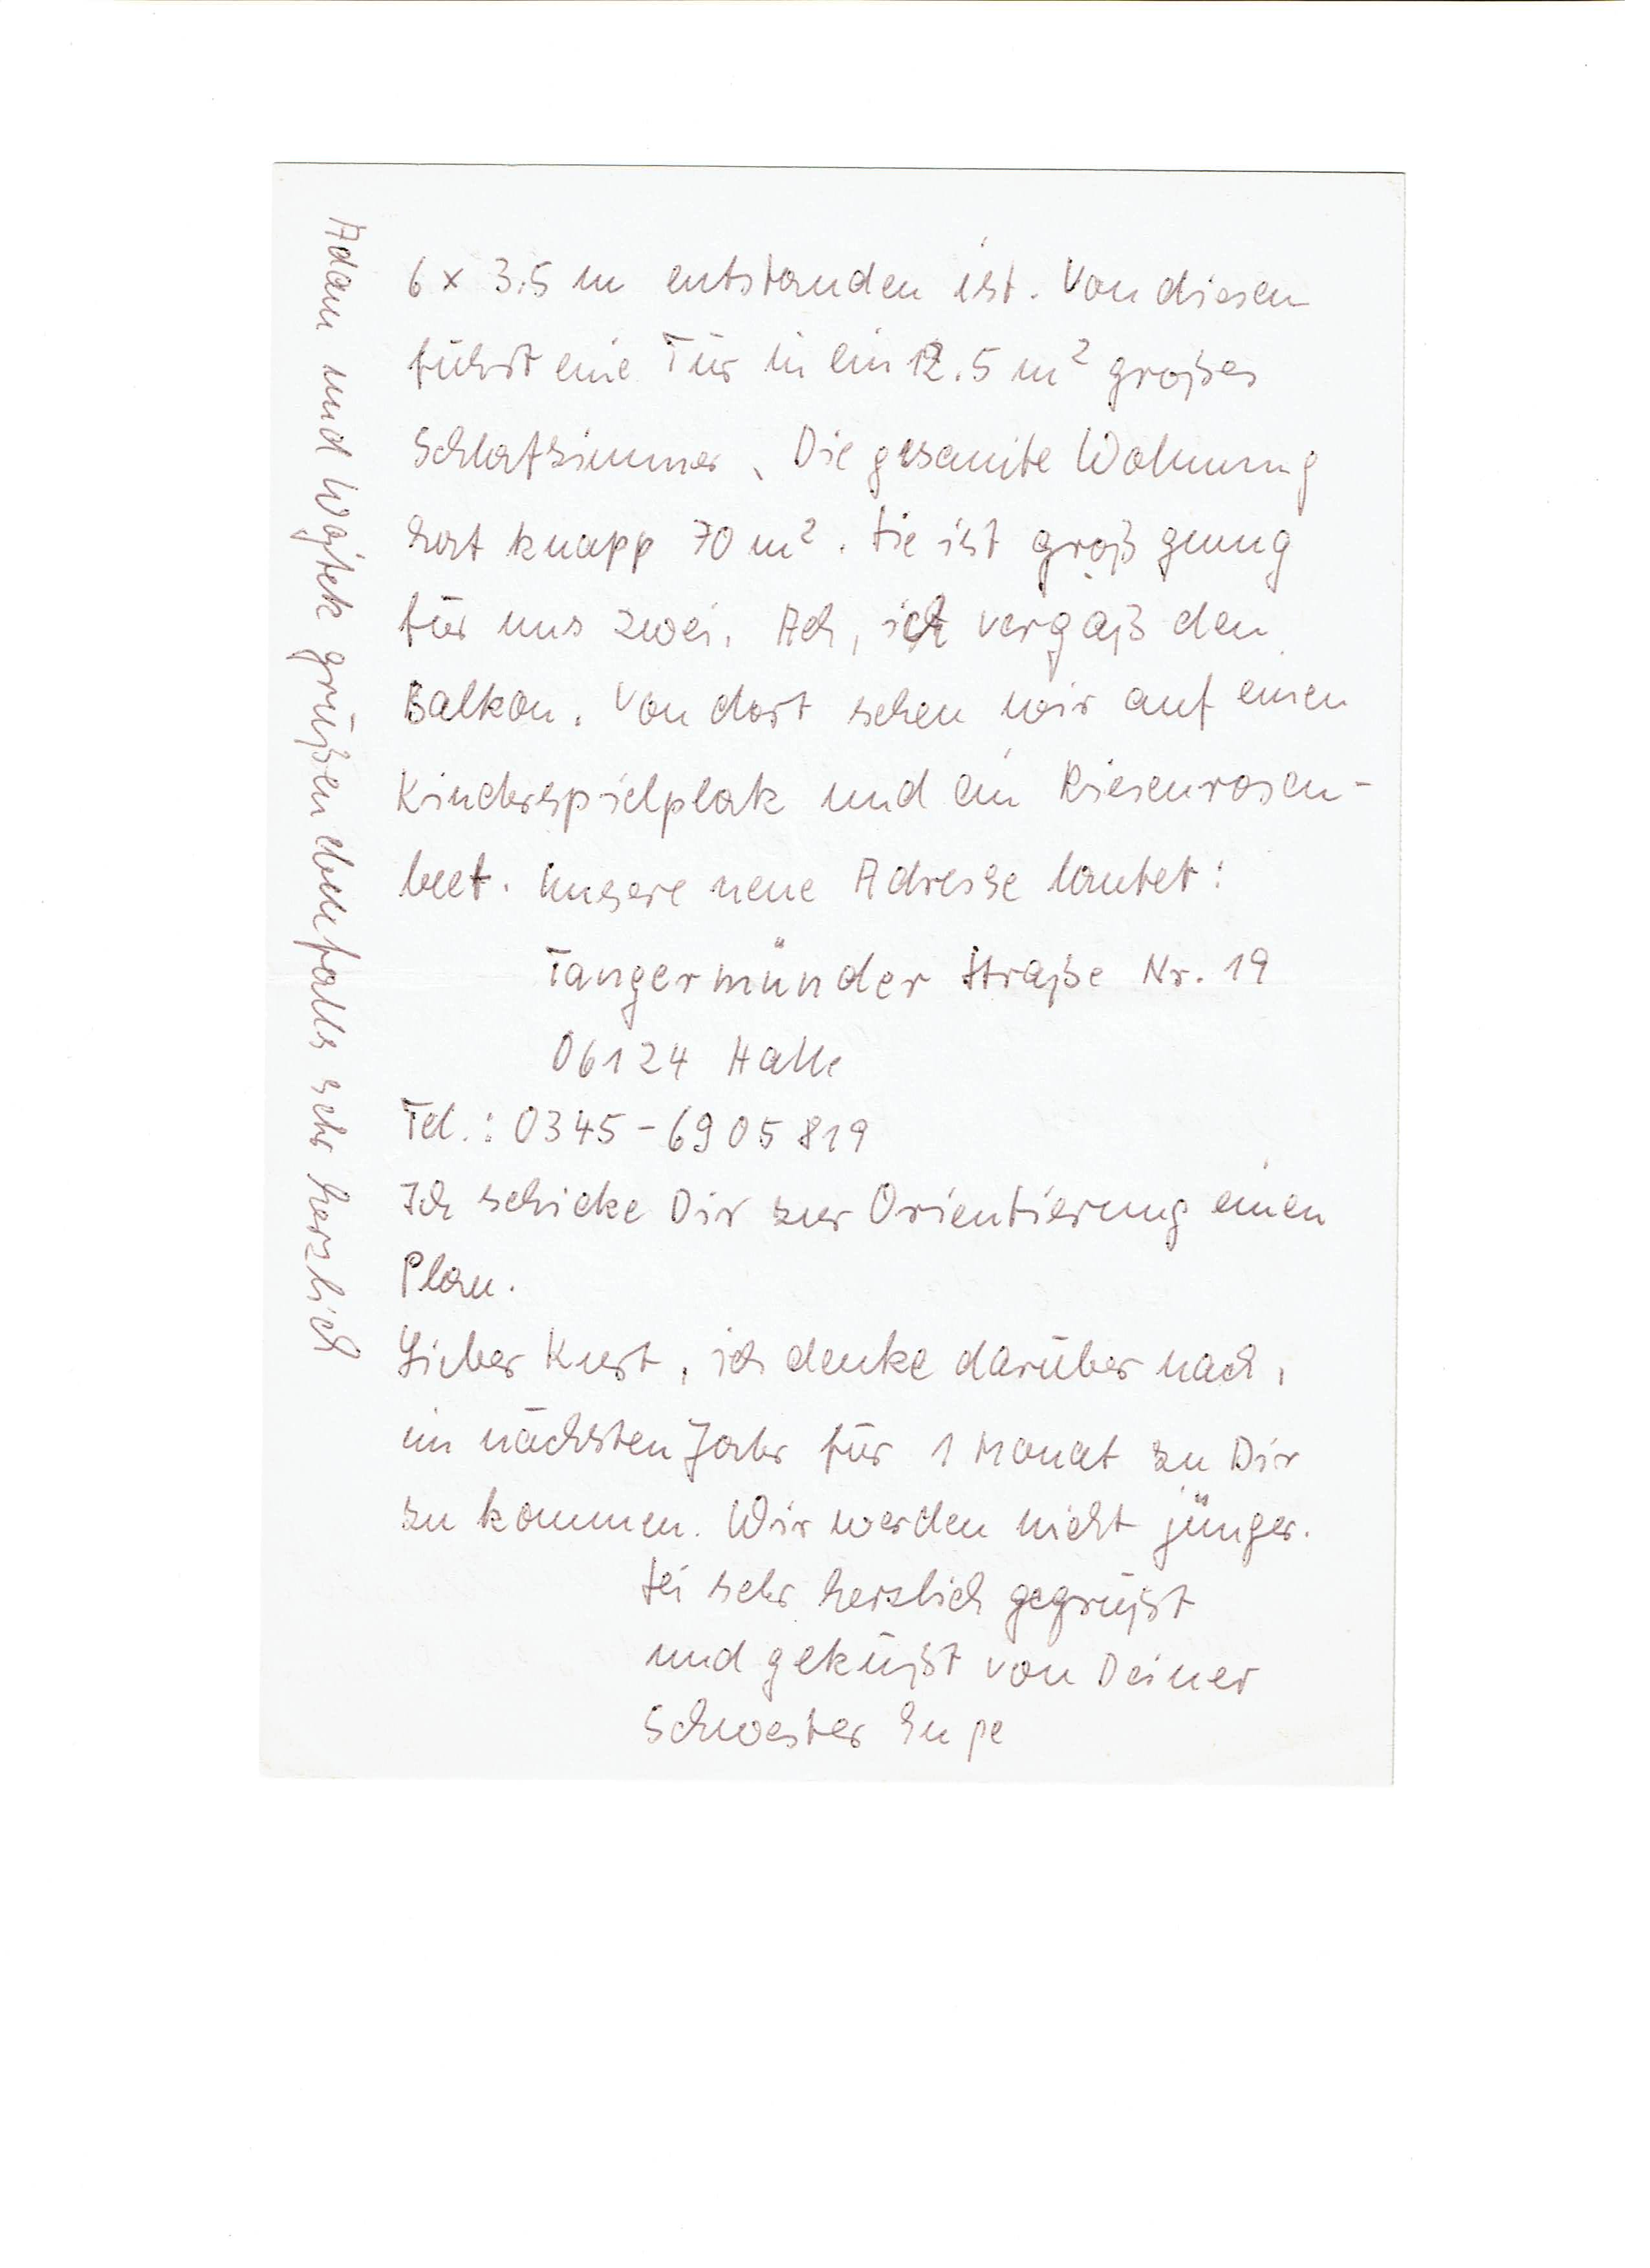 6 x 3.5 m entstanden ist. Von diesen
führt eine Tür in ein 12.5 m² großes
Schlafzimmer. Die gesamte Wohnung
hat knapp 70 m². Sie ist groß genug
für uns zwei. Ach, ich vergaß den
Balkon. Von dort sehen wir auf einen
Kinderspielplatz und ein Riesenrosen-
beet. Unsere neue Adresse lautet:
Tangermünder Straße Nr. 19
06124 Halle
Tel.: 0345-6905819
Ich schicke Dir zur Orientierung einen
Plan.
Lieber Kurt, ich denke darüber nach,
im nächsten Jahr für 1 Monat zu Dir
zu kommen. Wir werden nicht jünger.
Sei sehr herzlich gegrüßt
und geküßt von Deiner
Schwester Inge
Adam und Wojtek grüßen ebenfalls sehr herzlich